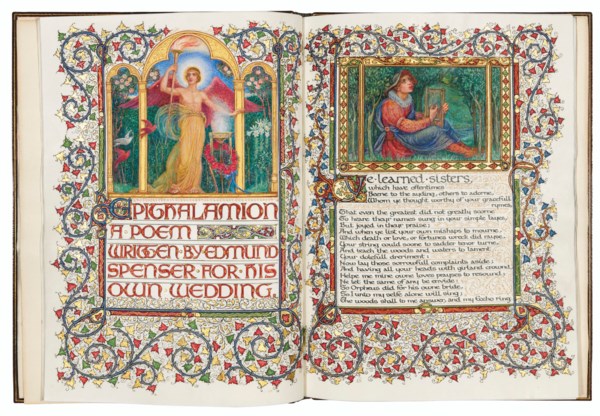 EPIGHALAMION
A POEM
WRIGEN BY EDMUND
SPENSER FOR HIS
OWN WEDDING.
Ye learned sisters,
which have oftentimes
Beene to me ayding, others to adorne,
Whom ye thought worthy of your gracefull
rymes,
That even the greatest did not greatly scorne
To heare theyr names sung in your simple layes,
But joyed in theyr praise;
And when ye list your own mishaps to mourne,
Which death or love, or fortunes wreck did rayse,
Your string could soone to sadder tenor turne,
And teach the woods and waters to lament
Your dolefull dreriment:
Now lay those sorrowfull complaints aside;
And having all your heads with girland crownd,
Helpe me mine owne loves prayses to resound;
Ne let the same of any be envide:
So Orpheus did for his owne bride,
So I unto my selfe alone will sing;
The woods shall to me answer, and my Eccho ring.